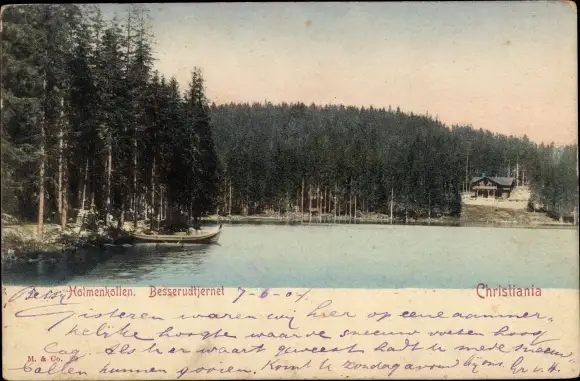 Holmenkollen. Besserudtjernet 7-6-04 Christiania
Gisteren waren wij hier op eene aanmer-
kelijke hoogte waar de sneeuw voeten hoog
lag. Als U er waart geweest hadt U met sneeuw
ballen kunnen gooien. Komt U zondagavond bij ons. Gr. v. H.
M. & Co.